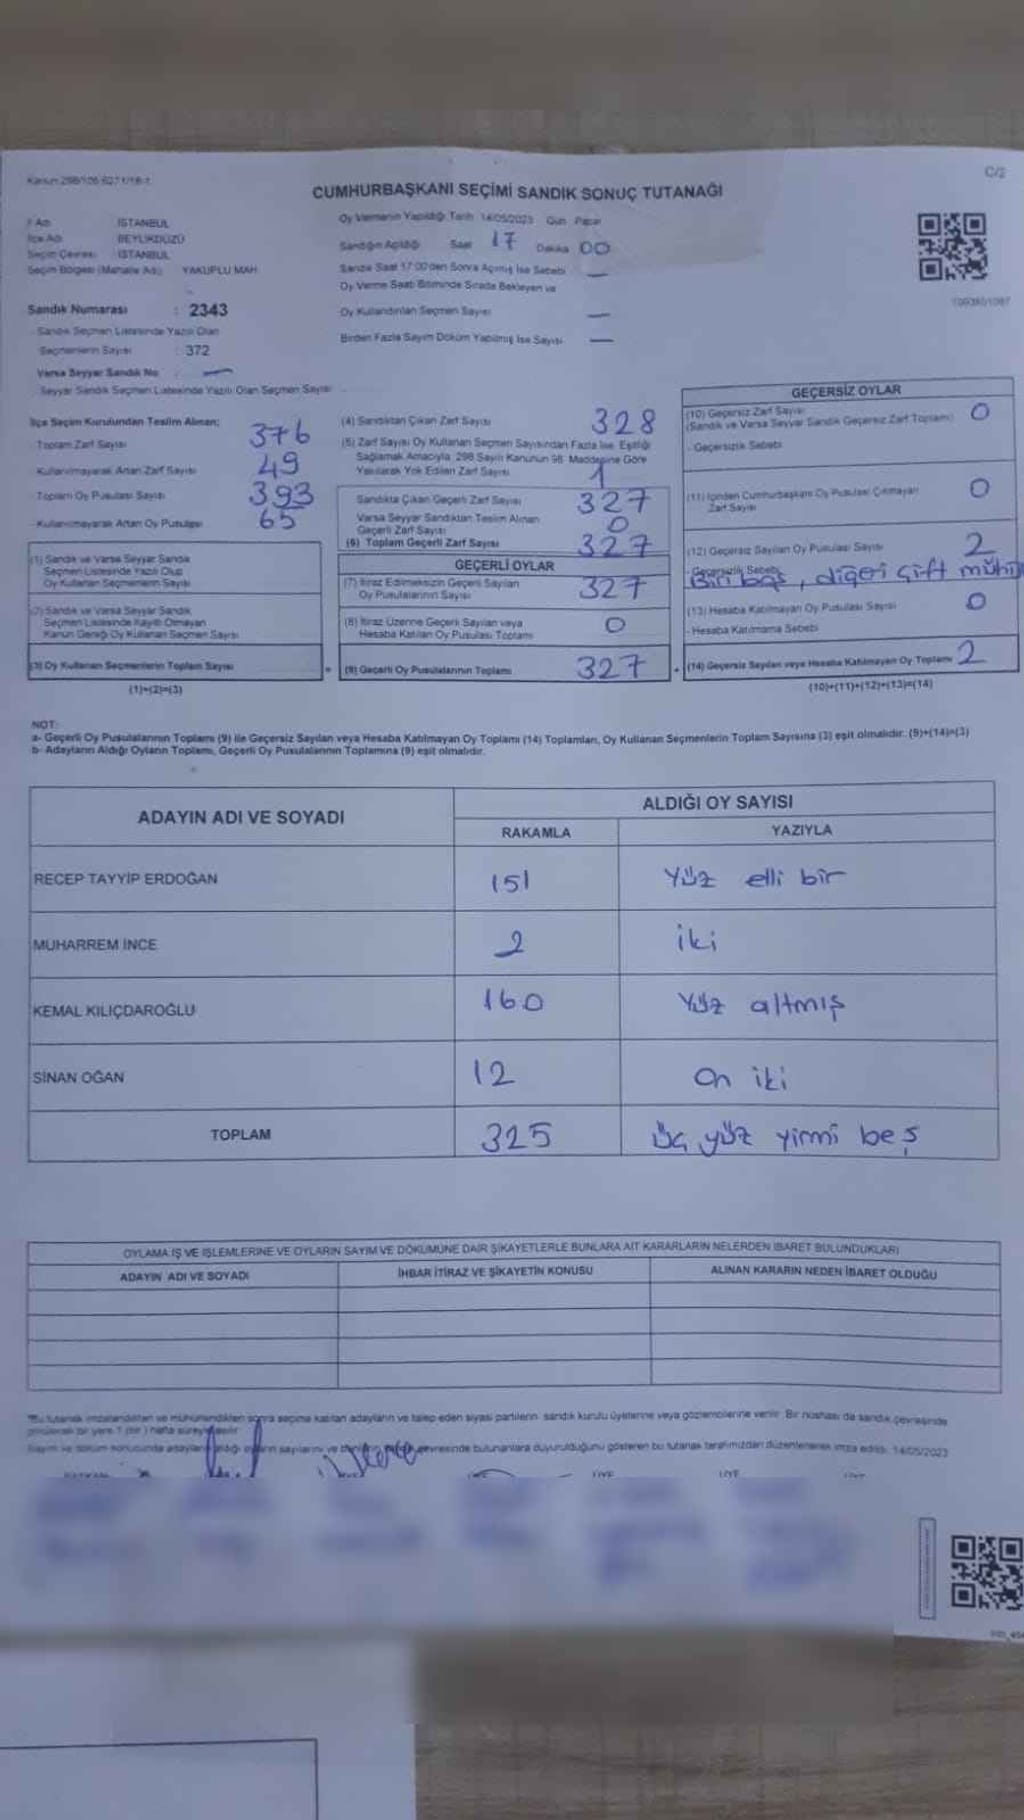 Kanun 298/105
C/2
CUMHURBAŞKANI SEÇİMİ SANDIK SONUÇ TUTANAĞI
İl Adı İSTANBUL
İlçe Adı BEYLİKDÜZÜ
Seçim Çevresi İSTANBUL
Seçim Bölgesi (Mahalle Adı) YAKUPLU MAH
Sandık Numarası : 2343
Sandık Seçmen Listesinde Yazılı Olan
Seçmenlerin Sayısı : 372
Varsa Seyyar Sandık No —
Seyyar Sandık Seçmen Listesinde Yazılı Olan Seçmen Sayısı
Oy Vermenin Yapıldığı Tarih 14/05/2023 Gün Pazar
Sandığın Açıldığı Saat 17 Dakika 00
Sandık Saat 17:00'den Sonra Açılmış İse Sebebi —
Oy Verme Saati Bitiminde Sırada Bekleyen ve
Oy Kullandırılan Seçmen Sayısı —
Birden Fazla Sayım Döküm Yapılmış İse Sayısı —
İlçe Seçim Kurulundan Teslim Alınan;
Toplam Zarf Sayısı 376
Kullanılmayarak Artan Zarf Sayısı 49
Toplam Oy Pusulası Sayısı 393
Kullanılmayarak Artan Oy Pusulası 65
(1) Sandık ve Varsa Seyyar Sandık
Seçmen Listesinde Yazılı Olup
Oy Kullanan Seçmenlerin Sayısı
(2) Sandık ve Varsa Seyyar Sandık
Seçmen Listesinde Kayıtlı Olmayan
Kanun Gereği Oy Kullanan Seçmen Sayısı
(3) Oy Kullanan Seçmenlerin Toplam Sayısı
(1)+(2)=(3)
(4) Sandıktan Çıkan Zarf Sayısı 328
(5) Zarf Sayısı Oy Kullanan Seçmen Sayısından Fazla İse, Eşitliği
Sağlamak Amacıyla, 298 Sayılı Kanunun 98. Maddesine Göre
Yakılarak Yok Edilen Zarf Sayısı 1
Sandıkta Çıkan Geçerli Zarf Sayısı 327
Varsa Seyyar Sandıktan Teslim Alınan
Geçerli Zarf Sayısı 0
(6) Toplam Geçerli Zarf Sayısı 327
GEÇERLİ OYLAR
(7) İtiraz Edilmeksizin Geçerli Sayılan
Oy Pusulalarının Sayısı 327
(8) İtiraz Üzerine Geçerli Sayılan veya
Hesaba Katılan Oy Pusulası Toplamı 0
(9) Geçerli Oy Pusulalarının Toplamı 327
GEÇERSİZ OYLAR
(10) Geçersiz Zarf Sayısı
(Sandık ve Varsa Seyyar Sandık Geçersiz Zarf Toplamı) 0
- Geçersizlik Sebebi
(11) İçinden Cumhurbaşkanı Oy Pusulası Çıkmayan
Zarf Sayısı 0
(12) Geçersiz Sayılan Oy Pusulası Sayısı 2
- Geçersizlik Sebebi
Biri boş, diğeri çift mühü
(13) Hesaba Katılmayan Oy Pusulası Sayısı 0
- Hesaba Katılmama Sebebi
(14) Geçersiz Sayılan veya Hesaba Katılmayan Oy Toplamı 2
(10)+(11)+(12)+(13)=(14)
NOT:
a- Geçerli Oy Pusulalarının Toplamı (9) ile Geçersiz Sayılan veya Hesaba Katılmayan Oy Toplamı (14) Toplamları, Oy Kullanan Seçmenlerin Toplam Sayısına (3) eşit olmalıdır. (9)+(14)=(3)
b- Adayların Aldığı Oyların Toplamı, Geçerli Oy Pusulalarının Toplamına (9) eşit olmalıdır.
ADAYIN ADI VE SOYADI
ALDIĞI OY SAYISI
RAKAMLA YAZIYLA
RECEP TAYYİP ERDOĞAN 151 Yüz elli bir
MUHARREM İNCE 2 iki
KEMAL KILIÇDAROĞLU 160 Yüz altmış
SİNAN OĞAN 12 On iki
TOPLAM 325 üç yüz yirmi beş
OYLAMA İŞ VE İŞLEMLERİNE VE OYLARIN SAYIM VE DÖKÜMÜNE DAİR ŞİKAYETLERLE BUNLARA AİT KARARLARIN NELERDEN İBARET BULUNDUKLARI
ADAYIN ADI VE SOYADI İHBAR İTİRAZ VE ŞİKAYETİN KONUSU ALINAN KARARIN NEDEN İBARET OLDUĞU
*Bu tutanak imzalandıktan ve mühürlendikten sonra seçime katılan adayların ve talep eden siyasi partilerin sandık kurulu üyelerine veya gözlemcilerine verilir. Bir nüshası da sandık çevresinde
görülecek bir yere 1 (bir) hafta süreyle asılır
Sayım ve döküm sonucunda adayların aldığı oyların sayılarını ve çevresinde bulunanlara duyurulduğunu gösteren bu tutanak tarafımızdan düzenlenerek imza edildi. 14/05/2023
ÜYE ÜYE ÜYE